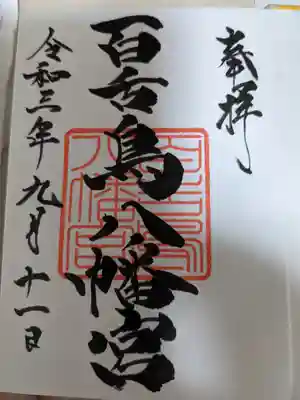 奉拝
百舌鳥八幡宮
令和三年九月十一日
百舌鳥八幡宮